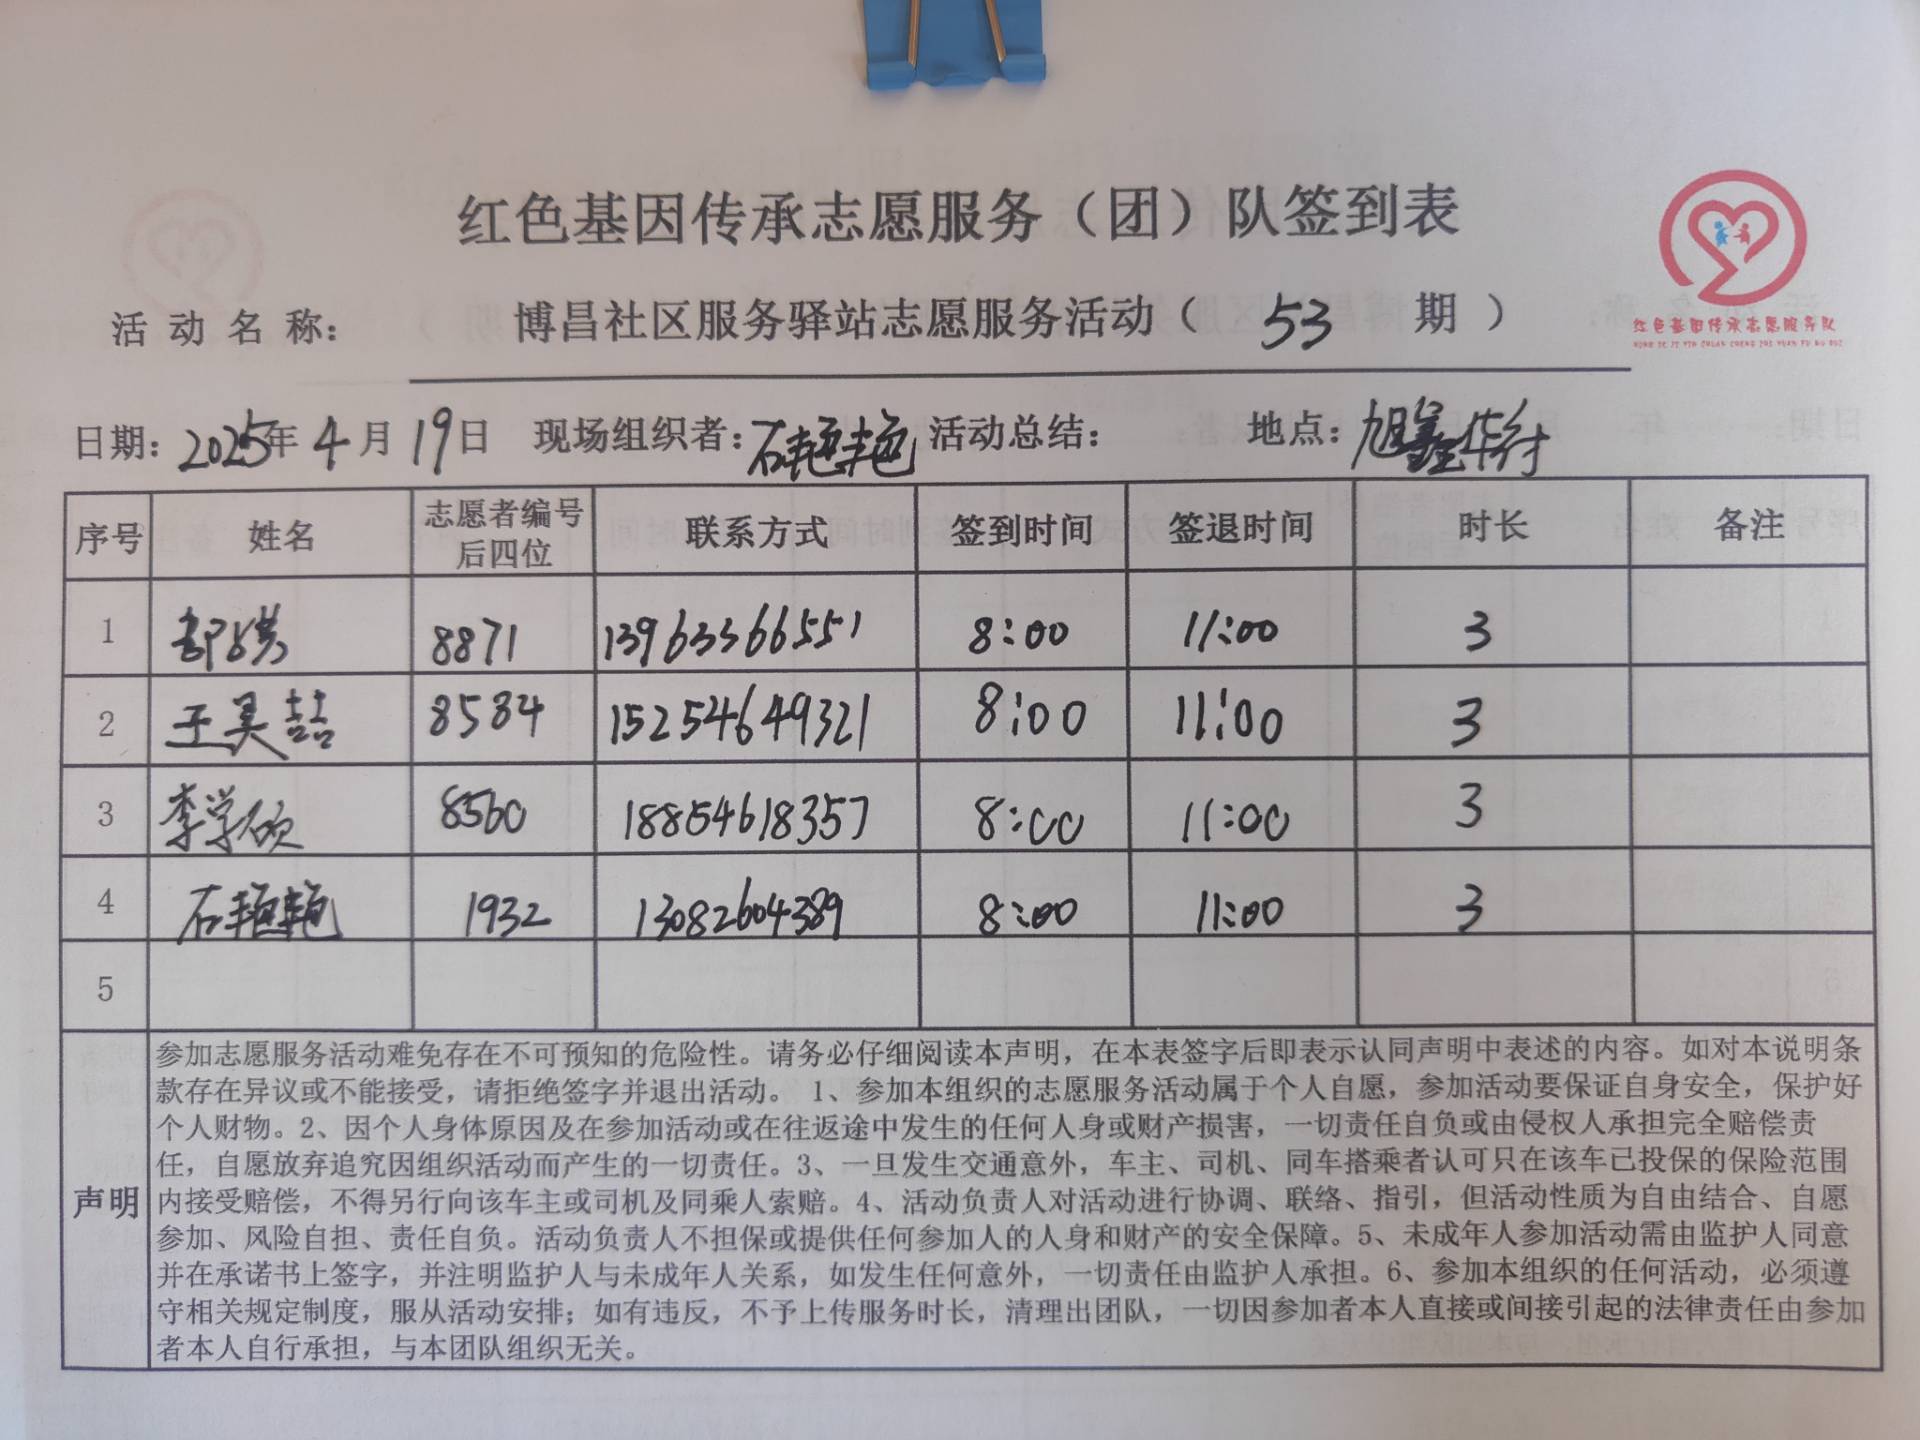 红色基因传承志愿服务（团）队签到表
红色基因传承志愿服务队
HONG SE JI YIN CHUAN CHENG ZHI YUAN FU WU DUI
活动名称： 博昌社区服务驿站志愿服务活动（ 53 期 ）
日期：2025年4月19日 现场组织者：石艳艳 活动总结： 地点：旭鑫华府
序号 姓名 志愿者编号后四位 联系方式 签到时间 签退时间 时长 备注
1 8871 13963366551 8:00 11:00 3
2 王昊喆 8584 15254649321 8:00 11:00 3
3 李学硕 8560 18854618357 8:00 11:00 3
4 石艳艳 1932 13082604389 8:00 11:00 3
5
声明
参加志愿服务活动难免存在不可预知的危险性。请务必仔细阅读本声明，在本表签字后即表示认同声明中表述的内容。如对本说明条
款存在异议或不能接受，请拒绝签字并退出活动。 1、参加本组织的志愿服务活动属于个人自愿，参加活动要保证自身安全，保护好
个人财物。2、因个人身体原因及在参加活动或在往返途中发生的任何人身或财产损害，一切责任自负或由侵权人承担完全赔偿责
任，自愿放弃追究因组织活动而产生的一切责任。3、一旦发生交通意外，车主、司机、同车搭乘者认可只在该车已投保的保险范围
内接受赔偿，不得另行向该车主或司机及同乘人索赔。4、活动负责人对活动进行协调、联络、指引，但活动性质为自由结合、自愿
参加、风险自担、责任自负。活动负责人不担保或提供任何参加人的人身和财产的安全保障。5、未成年人参加活动需由监护人同意
并在承诺书上签字，并注明监护人与未成年人关系，如发生任何意外，一切责任由监护人承担。6、参加本组织的任何活动，必须遵
守相关规定制度，服从活动安排；如有违反，不予上传服务时长，清理出团队，一切因参加者本人直接或间接引起的法律责任由参加
者本人自行承担，与本团队组织无关。